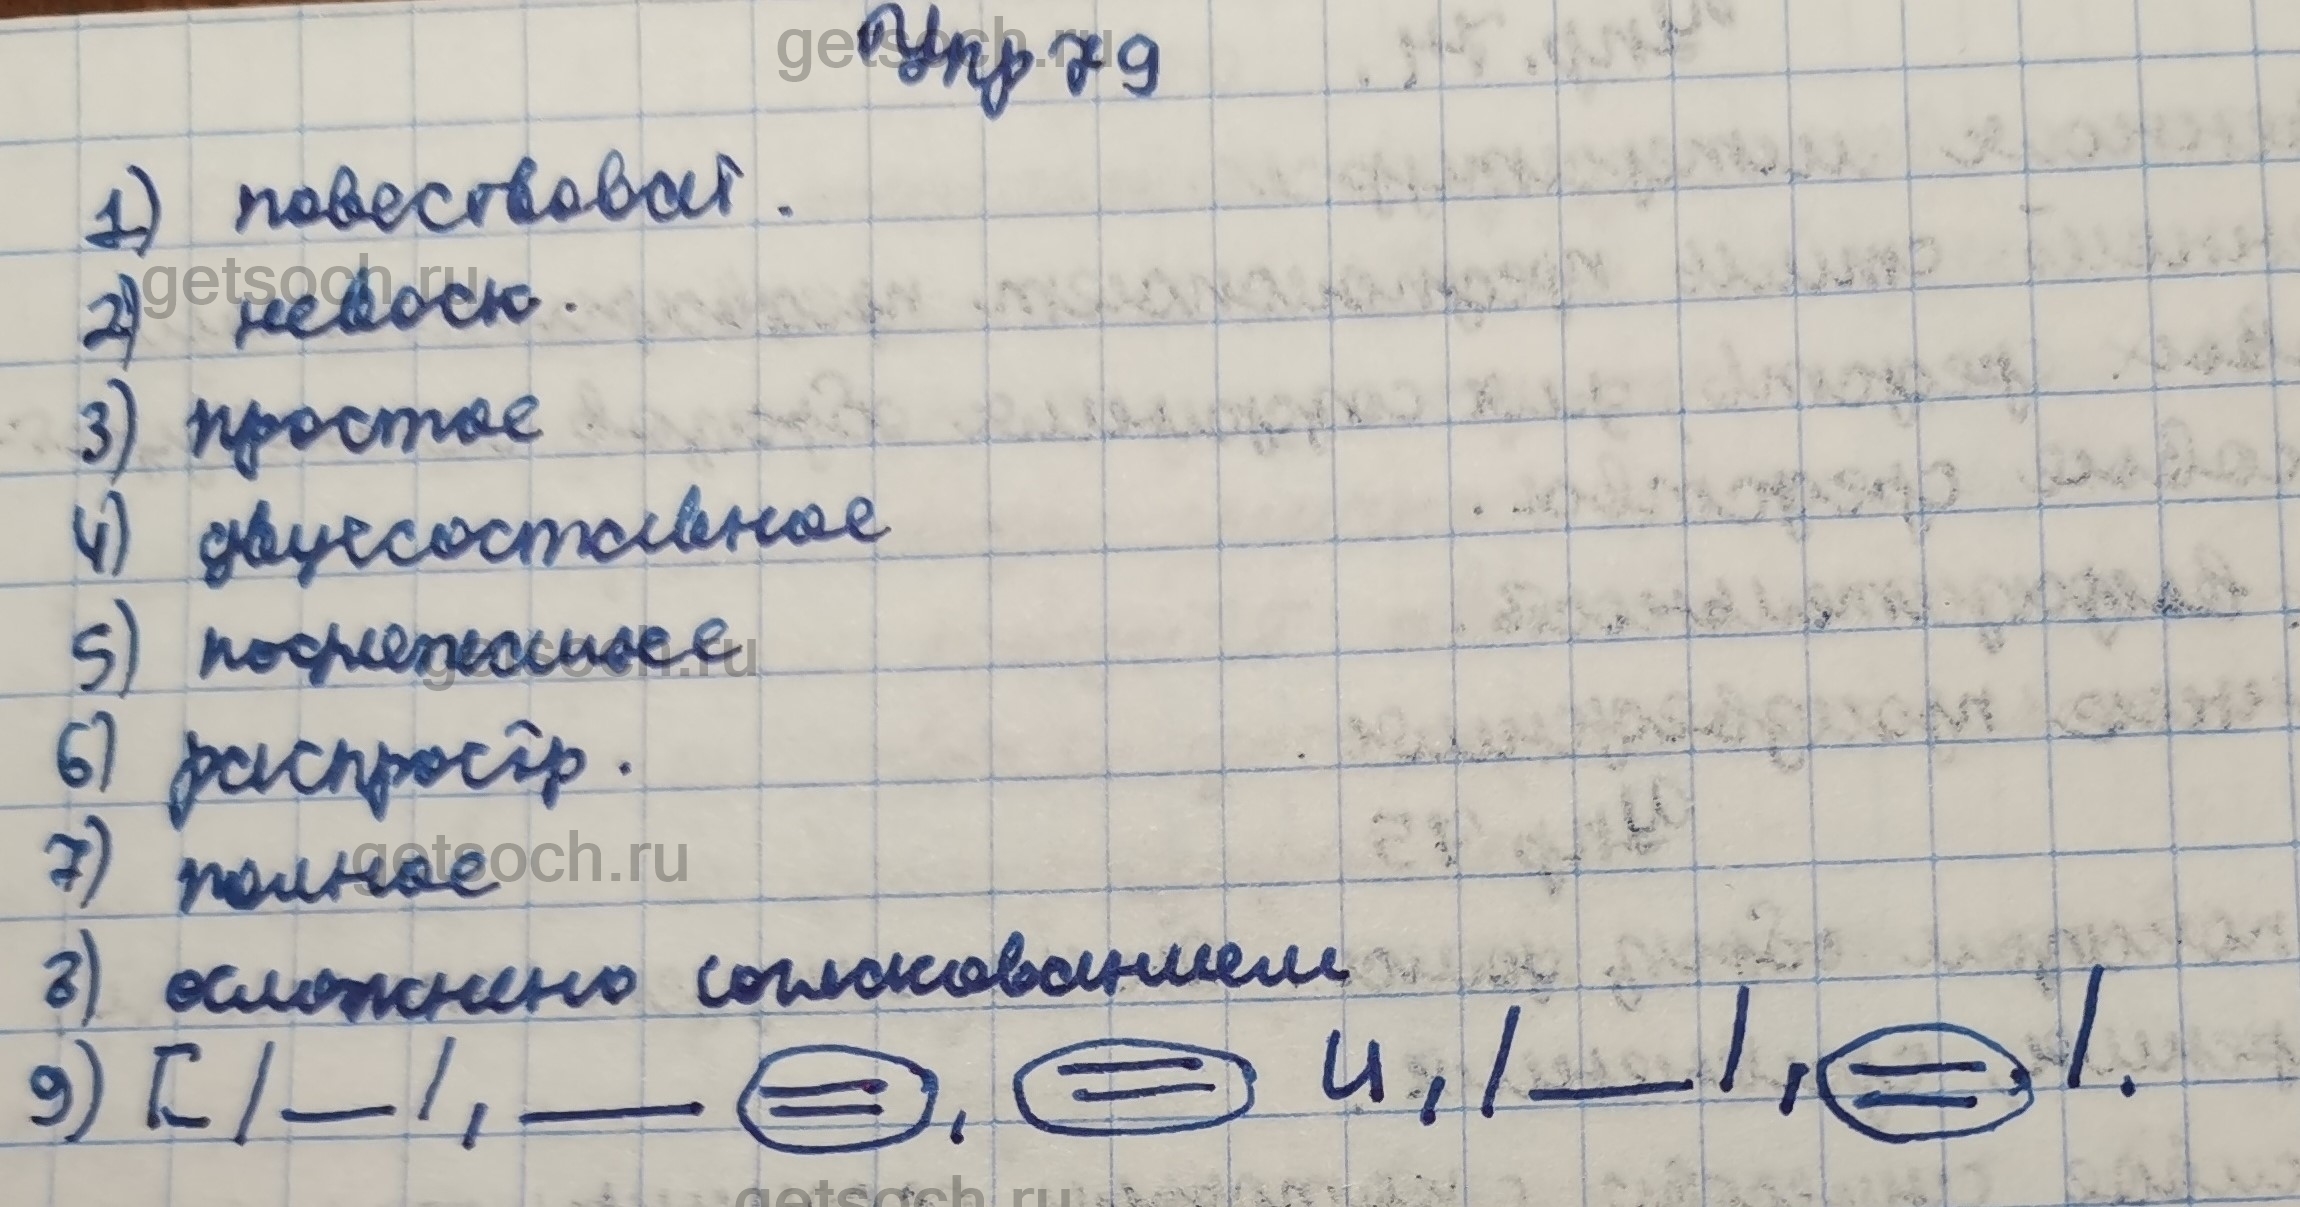 Упр 79
1) повествоват.
2) невоск.
3) простое
4) двусоставное
5)
6) распростр.
7) полное
8) осложнено согласованием
9) [ / — /, — =, = и, / — /, = /.
getsoch.ru
getsoch.ru
getsoch.ru
getsoch.ru
getsoch.ru